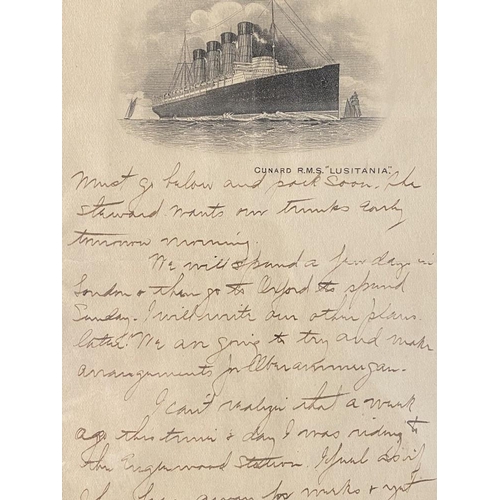 CUNARD R.M.S. "LUSITANIA".
Must go below and pack soon. The
steward wants our trunks early
tomorrow morning.
We will spend a few days in
London & then go to Oxford to spend
Sunday. I will write our other plans
later. We are going to try and make
arrangements for Oberammergau.
I can't realize that a week
ago this time & day I was riding to
the Englewood Station. I feel as if
I for weeks & yet